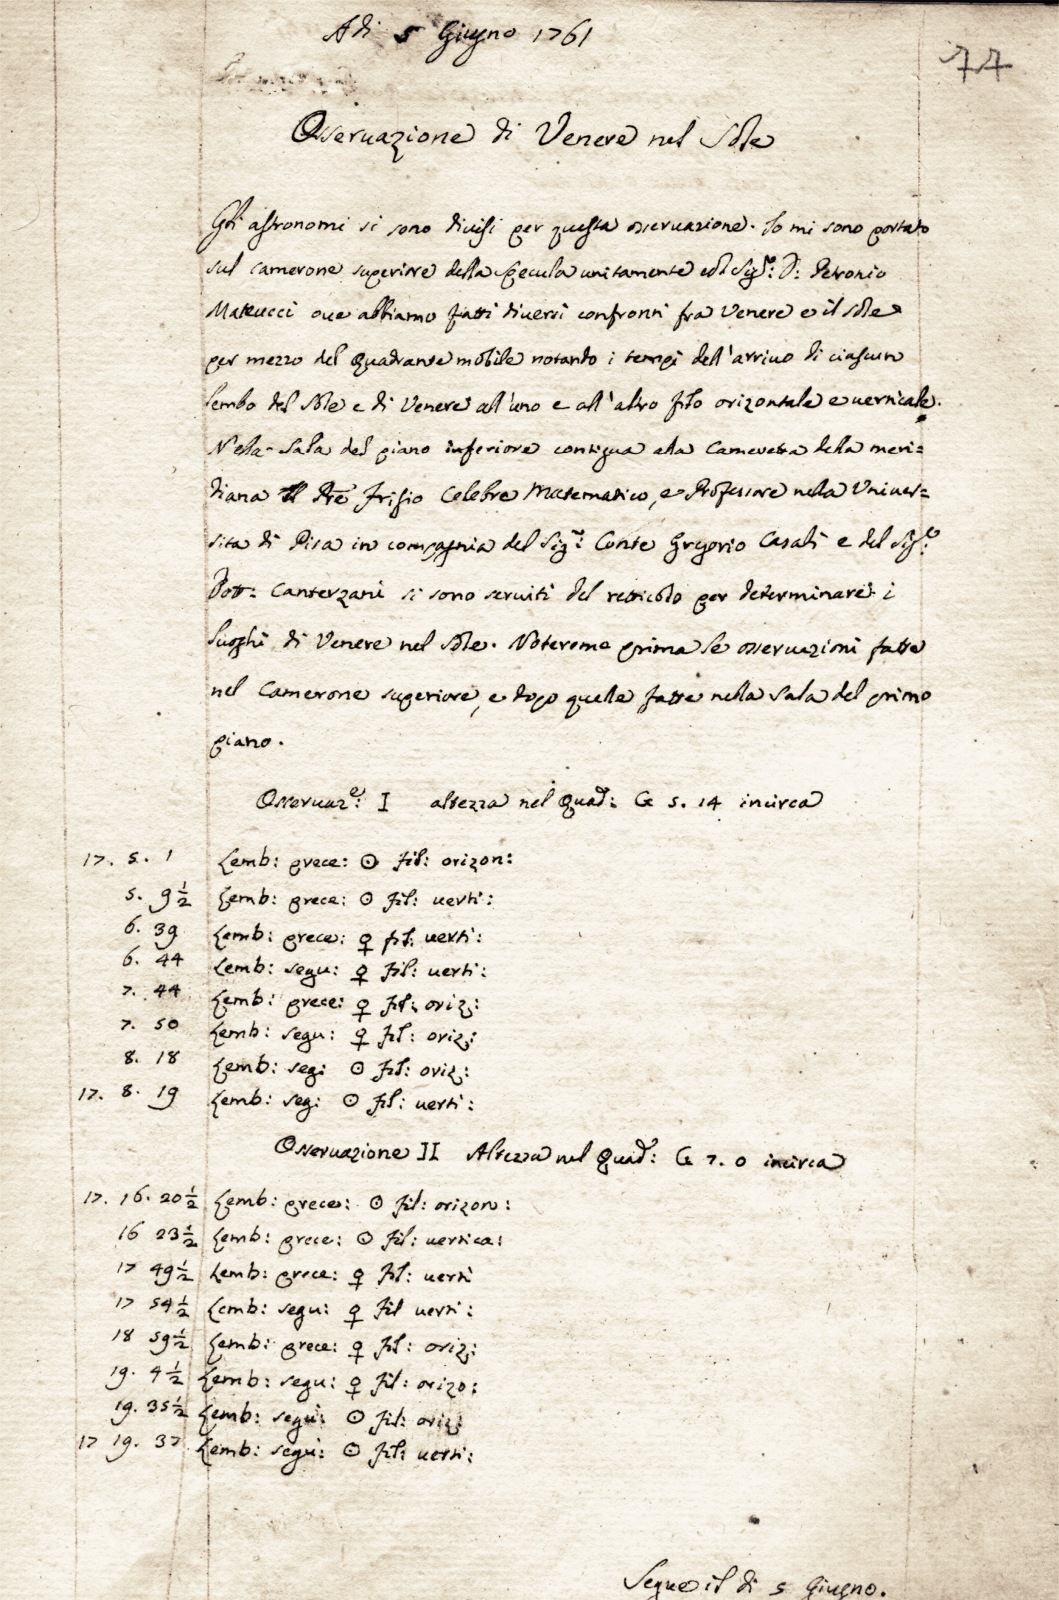 Adi 5 Giugno 1761
77
Osservazione di Venere nel Sole
Gli astronomi si sono divisi per questa osservazione. Io mi sono portato
sul camerone superiore della Specula unitamente col Sig.re D: Petronio
Mateucci ove abbiamo fatti diversi confronti fra Venere e il Sole
per mezzo del Quadrante mobile notando i tempi dell'arrivo di ciascun
lembo del Sole e di Venere all'uno e all'altro filo orizontale e verticale.
Nella Sala del piano inferiore contigua alla Cameretta della meri=
diana Il Pre Frisio Celebre Matematico, e Professore nella Univer=
sita di Pisa in compagnia del Sig.r Conte Grgorio Casali e del Sig.re
Dott: Canterzani si sono serviti del retticolo per determinare i
luoghi di Venere nel Sole. Noteremo prima le osservazioni fatte
nel Camerone superiore, e dopo quelle fatte nella Sala del primo
piano.
Osservaz.e: I altezza nel Quad: G 5. 14 incirca
17. 5. 1 Lemb: prece: ☉ fil: orizon:
5. 9 1/2 Lemb: prece: ☉ fil: verti:
6. 39 Lemb: prece: ♀ fil: verti:
6. 44 Lemb: segu: ♀ fil: verti:
7. 44 Lemb: prece: ♀ fil: oriz:
7. 50 Lemb: segu: ♀ fil: oriz:
8. 18 Lemb: seg: ☉ fil: oriz:
17. 8. 19 Lemb: seg: ☉ fil: verti:
Osservazione II Altezza nel Quad: G 7. 0 incirca
17. 16. 20 1/2 Lemb: prece: ☉ fil: orizon:
16 23 1/2 Lemb: prece: ☉ fil: vertica:
17 49 1/2 Lemb: prece: ♀ fil: verti
17 54 1/2 Lemb: segu: ♀ fil verti:
18 59 1/2 Lemb: prece: ♀ fil: oriz:
19. 4 1/2 Lemb: segu: ♀ fil: orizo:
19. 35 1/2 Lemb: segu: ☉ fil: oriz:
17 19. 37 Lemb: segu: ☉ fil: verti:
Segue il di 5 Giugno.